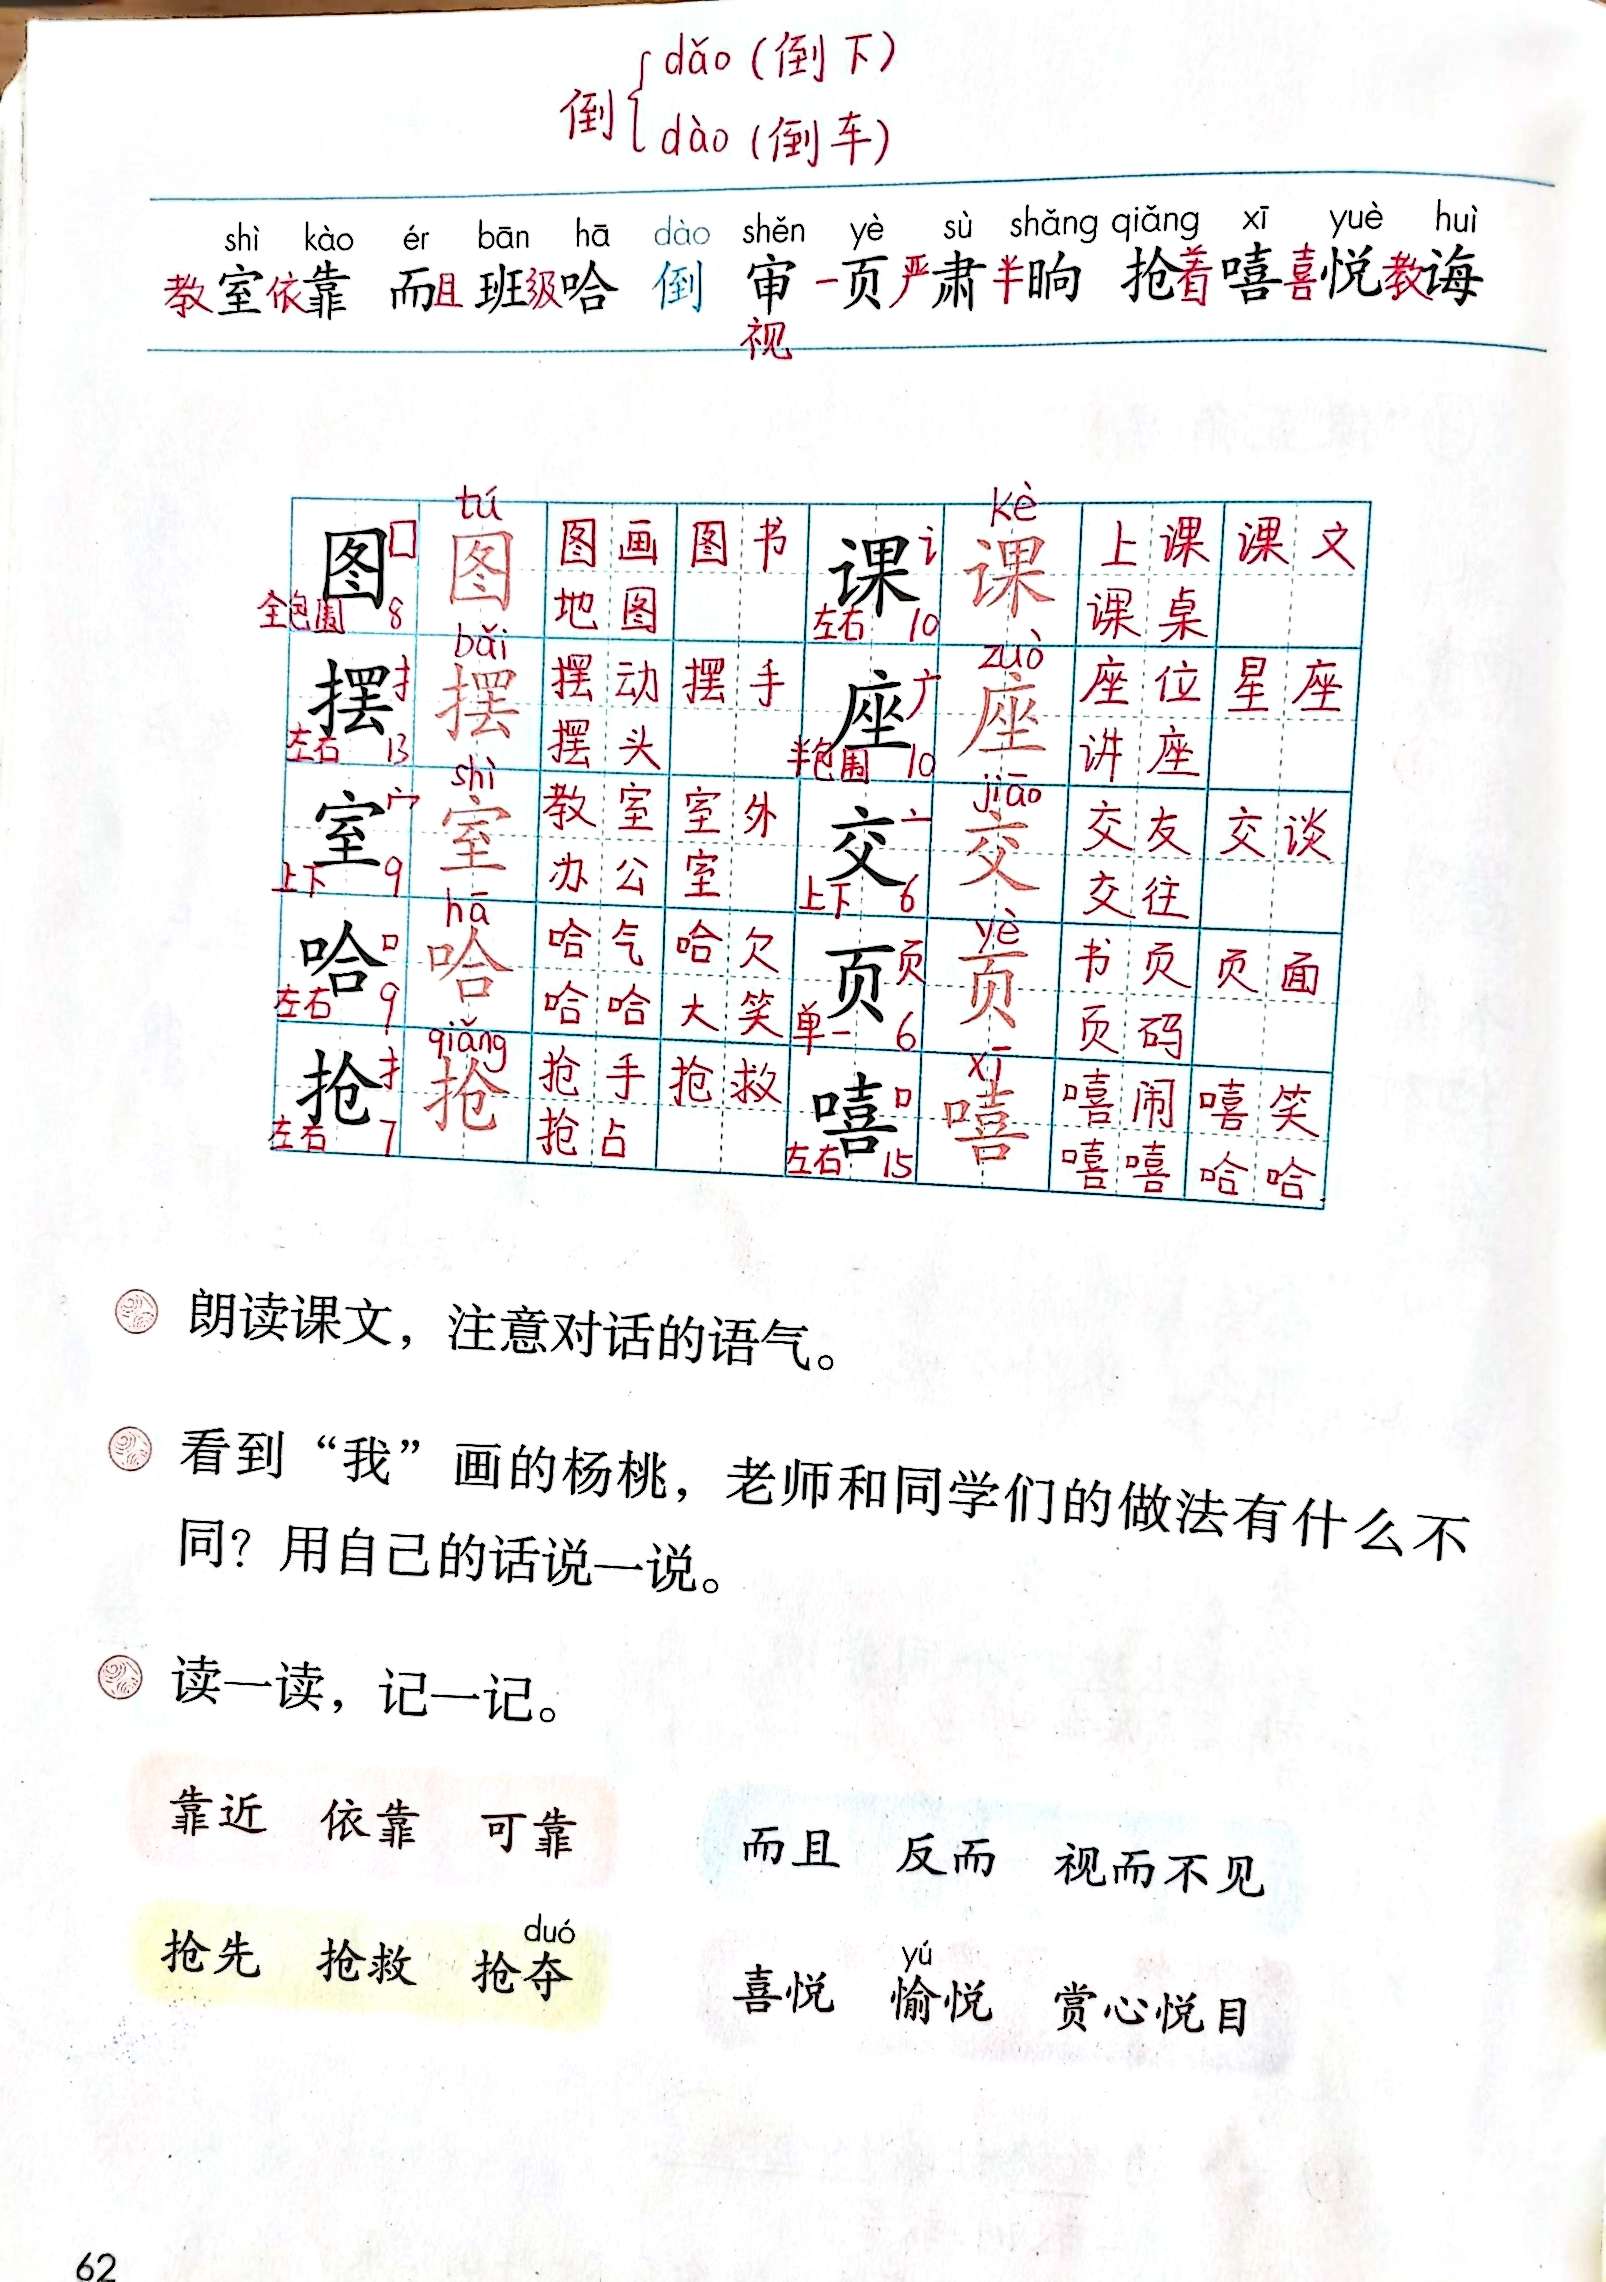 倒 dǎo（倒下）
dào（倒车）
shì kào ér bān hā dào shěn yè sù shǎng qiǎng xī yuè huì
教室依靠 而且 班级哈 倒 审 一页严肃半晌 抢着嘻喜悦教诲
视
tú kè
图 囗 图 图画 图书 课 讠 课 上课 课文
全包围 8 地图 左右 10 课桌
bǎi zuò
摆 扌 摆 摆动 摆手 座 广 座 座位 星座
左右 13 摆头 半包围 10 讲座
shì jiāo
室 宀 室 教室 室外 交 亠 交 交友 交谈
上下 9 办公室 上下 6 交往
hā yè
哈 口 哈 哈气 哈欠 页 页 页 书页 页面
左右 9 哈哈大笑 单一 6 页码
qiǎng xī
抢 扌 抢 抢手 抢救 嘻 口 嘻 嘻闹 嘻笑
左右 7 抢占 左右 15 嘻嘻哈哈
朗读课文，注意对话的语气。
看到“我”画的杨桃，老师和同学们的做法有什么不
同？用自己的话说一说。
读一读，记一记。
靠近 依靠 可靠
而且 反而 视而不见
duó
抢先 抢救 抢夺
yú
喜悦 愉悦 赏心悦目
62